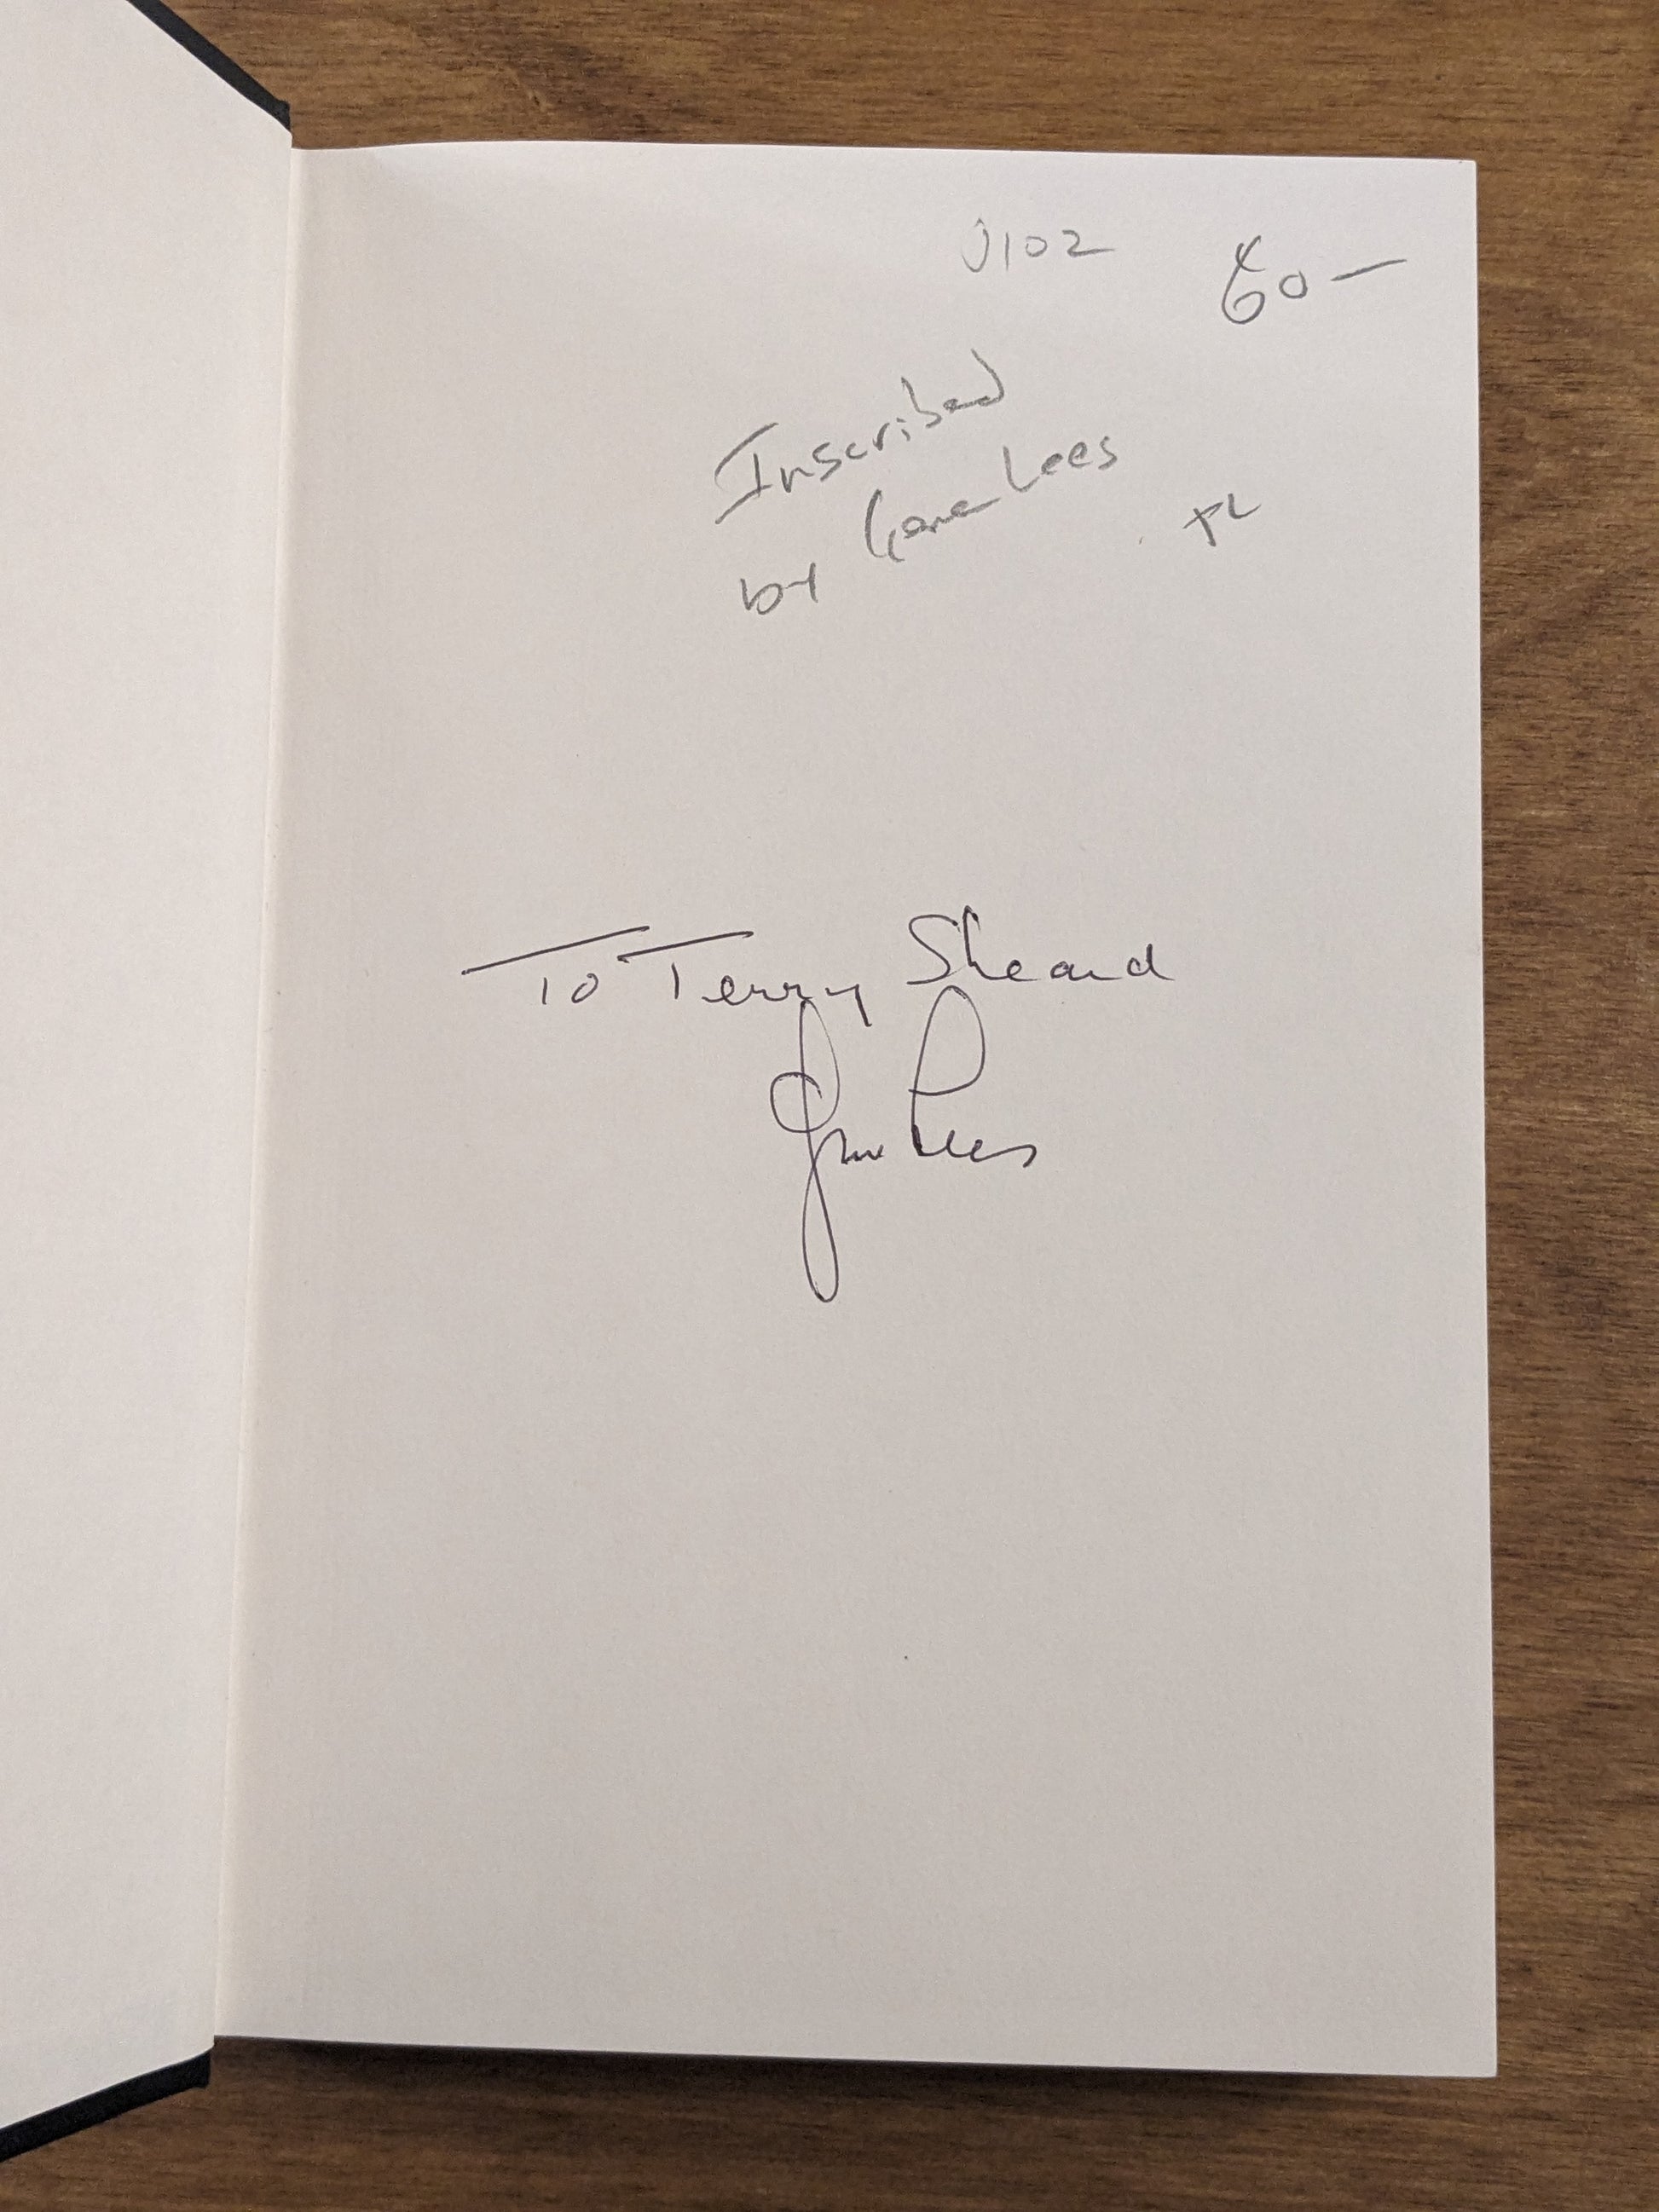 J102
60 —
Inscribed
by Gene Lees
To Terry Sheard
Gene Lees